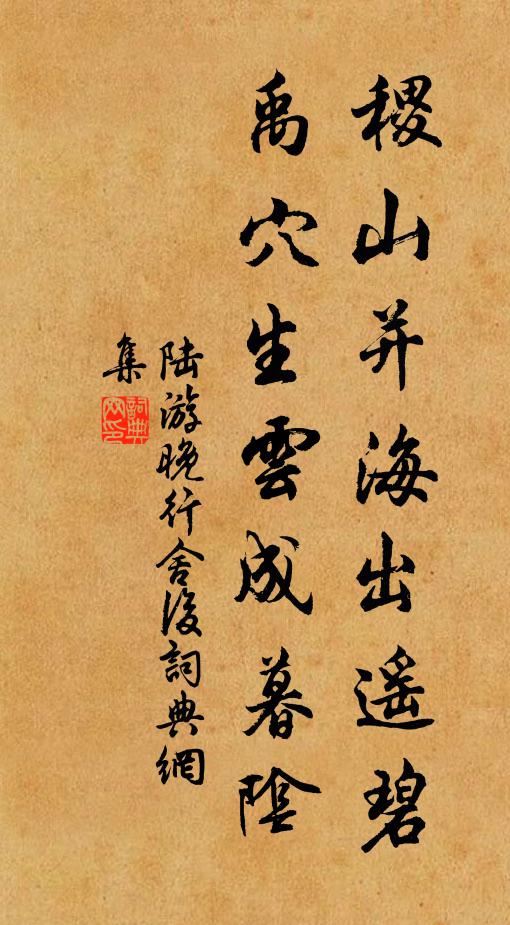 稷山并海出遥碧
禹穴生雲成暮陰
陆游晚行舍後詞典網
集
詞典網印